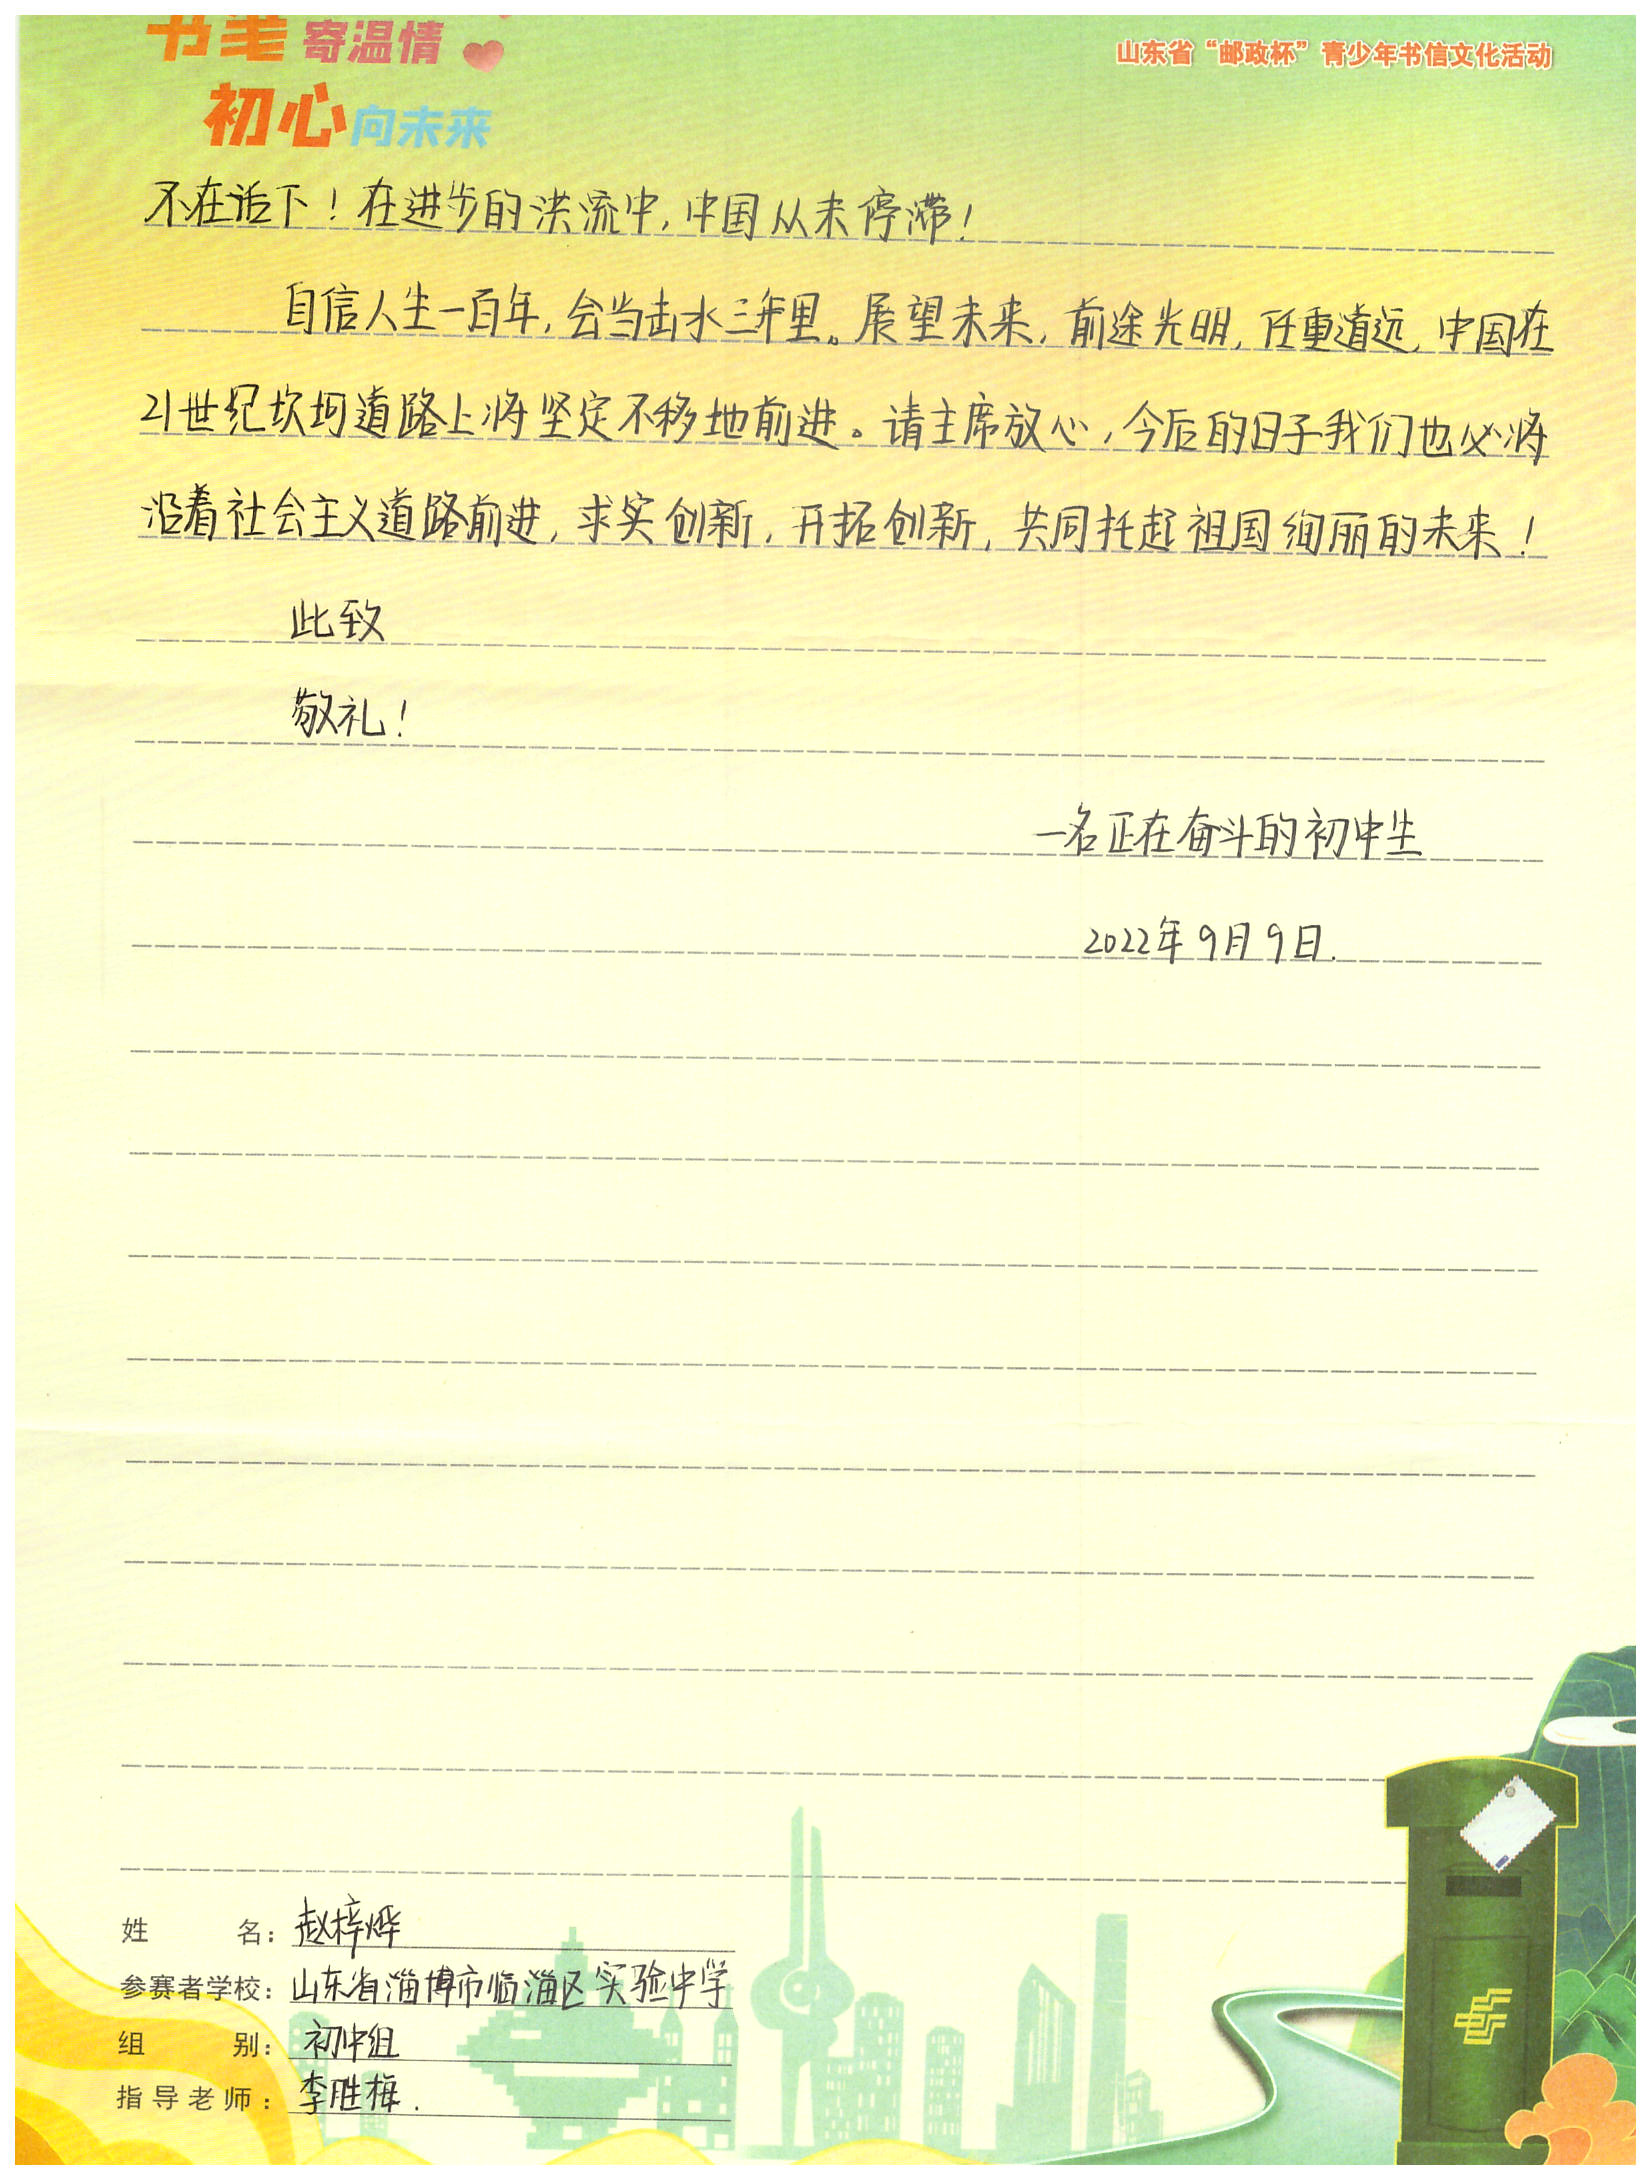 书笔寄温情
初心向未来
山东省“邮政杯”青少年书信文化活动
不在话下！在进步的洪流中，中国从未停滞！
自信人生一百年，会当击水三千里。展望未来，前途光明，任重道远，中国在
21世纪坎坷道路上将坚定不移地前进。请主席放心，今后的日子我们也必将
沿着社会主义道路前进，求实创新，开拓创新，共同托起祖国绚丽的未来！
此致
敬礼！
一名正在奋斗的初中生
2022年9月9日.
姓名：赵梓烨
参赛者学校：山东省淄博市临淄区实验中学
组别：初中组
指导老师：李胜梅.